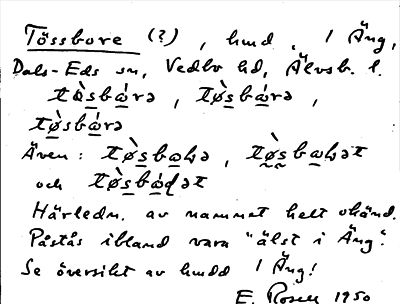 Tössbore (?), hmd. 1 Äng,
Dals-Eds sn, Vedbo hd, Älvsb. l.
tø̀sbárə, tø̀sbárə,
tø̀sbárə
Även: tø̀sbohə, tø̀sbohət
och tø̀sbóɖət
Härledn. av namnet helt okänd.
Påstås ibland vara "älst i Äng".
Se översikt av hmdd 1 Äng!
E. Rosell 1950